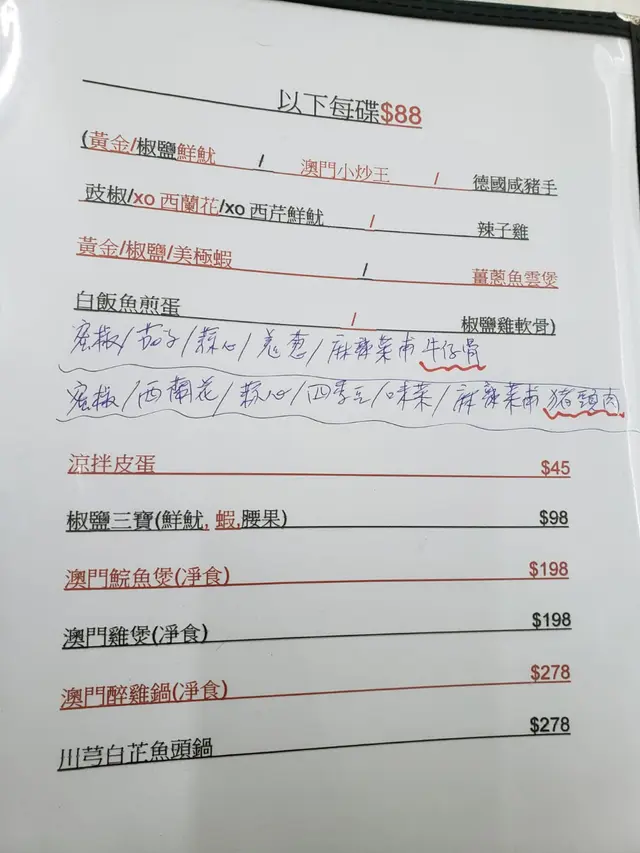 以下每碟$88
(黃金/椒鹽鮮魷 / 澳門小炒王 / 德國咸豬手
豉椒/xo 西蘭花/xo 西芹鮮魷 / 辣子雞
黃金/椒鹽/美極蝦 / 薑蔥魚雲煲
白飯魚煎蛋 / 椒鹽雞軟骨)
蜜椒/茄子/蒜心/羗蔥/麻辣菜甫牛仔骨
蜜椒/西蘭花/蒜心/四季豆/味菜/麻辣菜甫猪頸肉
涼拌皮蛋 $45
椒鹽三寶(鮮魷, 蝦,腰果) $98
澳門鯇魚煲(淨食) $198
澳門雞煲(淨食) $198
澳門醉雞鍋(淨食) $278
川芎白芷魚頭鍋 $278